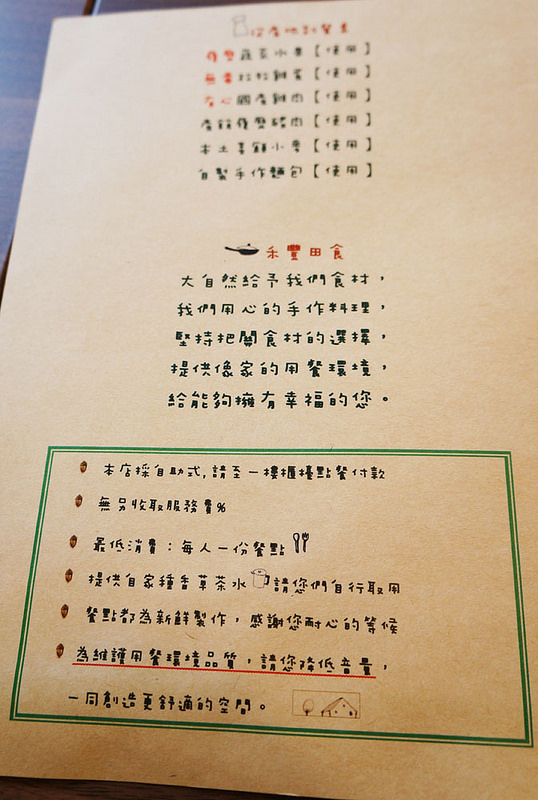 從產地到餐桌
履歷蔬菜水果【使用】
無毒拉拉雞蛋【使用】
友心國產雞肉【使用】
產銷履歷豬肉【使用】
本土喜願小麥【使用】
自製手作麵包【使用】
禾豐田食
大自然給予我們食材，
我們用心的手作料理，
堅持把關食材的選擇，
提供像家的用餐環境，
給能夠擁有幸福的您。
本店採自助式，請至一樓櫃檯點餐付款
無另收取服務費%
最低消費：每人一份餐點
提供自家種香草茶水 請您們自行取用
餐點都為新鮮製作，感謝您耐心的等候
為維護用餐環境品質，請您降低音量，
一同創造更舒適的空間。